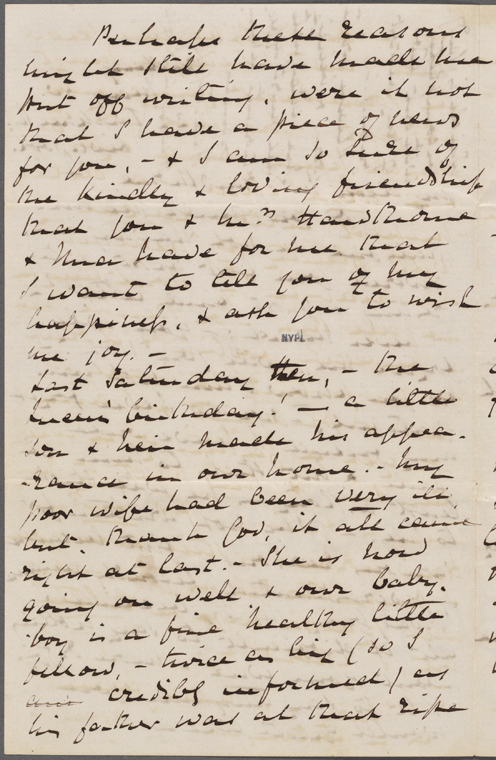 Perhaps these reasons
might still have made me
put off writing, were it not
that I have a piece of news
for you, - & I am so sure of
the kindly & loving friendship
that you & Mrs Hawthorne
& Una have for me that
I want to tell you of my
happiness, & ask you to wish
me joy. -
NYPL
Last Saturday then, - the
Queen's birthday! - a little
son & heir made his appea-
-rance in our home. - My
poor wife had been very ill,
but, thank God, it all came
right at last. - She is now
going on well & our baby-
boy is a fine healthy little
fellow, - twice as big (so I
am credibly informed) as
his father was at that ripe